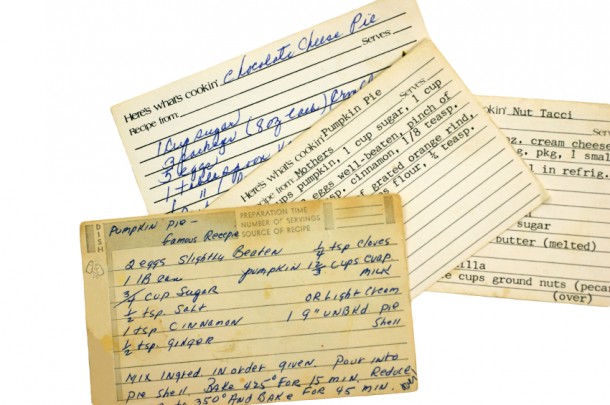 Here's what's cookin' Chocolate Cheese Pie
Recipe from: Serves
1 Cup sugar
3 packages (8oz each) Cream
3 eggs
1 teaspoon
Here's what's cookin' Pumpkin Pie
Recipe from: Mothers Serves
ups pumpkin, 1 cup sugar, 1 cup
eggs well-beaten, pinch of
sp. cinnamon, 1/8 teasp.
of grated orange rind,
s flour, ½ teasp.
okin' Nut Tacci
oz. cream cheese
g. pkg, 1 smal
in refrig.
sugar
butter (melted)
illa
e cups ground nuts (pecan
(over)
DISH
PUMPKIN PIE -
Famous Recipe
PREPARATION TIME
NUMBER OF SERVINGS
SOURCE OF RECIPE
2 eggs Slightly Beaten ¼ tsp Cloves
1 LB can pumpkin 1 ⅔ cups evap.
milk
¾ cup Sugar
½ tsp. Salt OR Light Cream
1 tsp CINNAMON 1 9" UNBKd pie
shell
½ tsp. ginger
Mix Ingred in order given. Pour into
pie shell. Bake 425° FOR 15 min. Reduce
to 350° AND BAKE FOR 45 min.